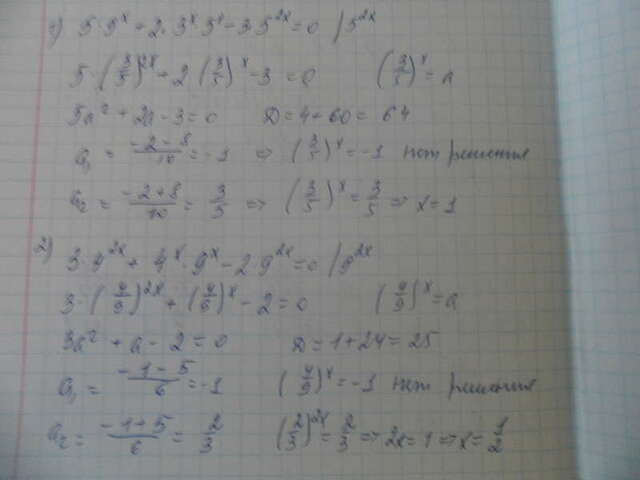 1) 5·9^x + 2·3^x 5^x - 3·5^{2x} = 0 / 5^{2x}
5·(3/5)^{2x} + 2(3/5)^x - 3 = 0 (3/5)^x = a
5a² + 2a - 3 = 0 D = 4 + 60 = 64
a₁ = (-2-8)/10 = -1 ⇒ (3/5)^x = -1 нет решения
a₂ = (-2+8)/10 = 3/5 ⇒ (3/5)^x = 3/5 ⇒ x = 1
2) 3·4^{2x} + 4^x·9^x - 2·9^{2x} = 0 / 9^{2x}
3·(4/9)^{2x} + (4/9)^x - 2 = 0 (4/9)^x = a
3a² + a - 2 = 0 D = 1 + 24 = 25
a₁ = (-1-5)/6 = -1 (4/9)^x = -1 нет решения
a₂ = (-1+5)/6 = 2/3 (2/3)^{2x} = 2/3 ⇒ 2x = 1 ⇒ x = 1/2